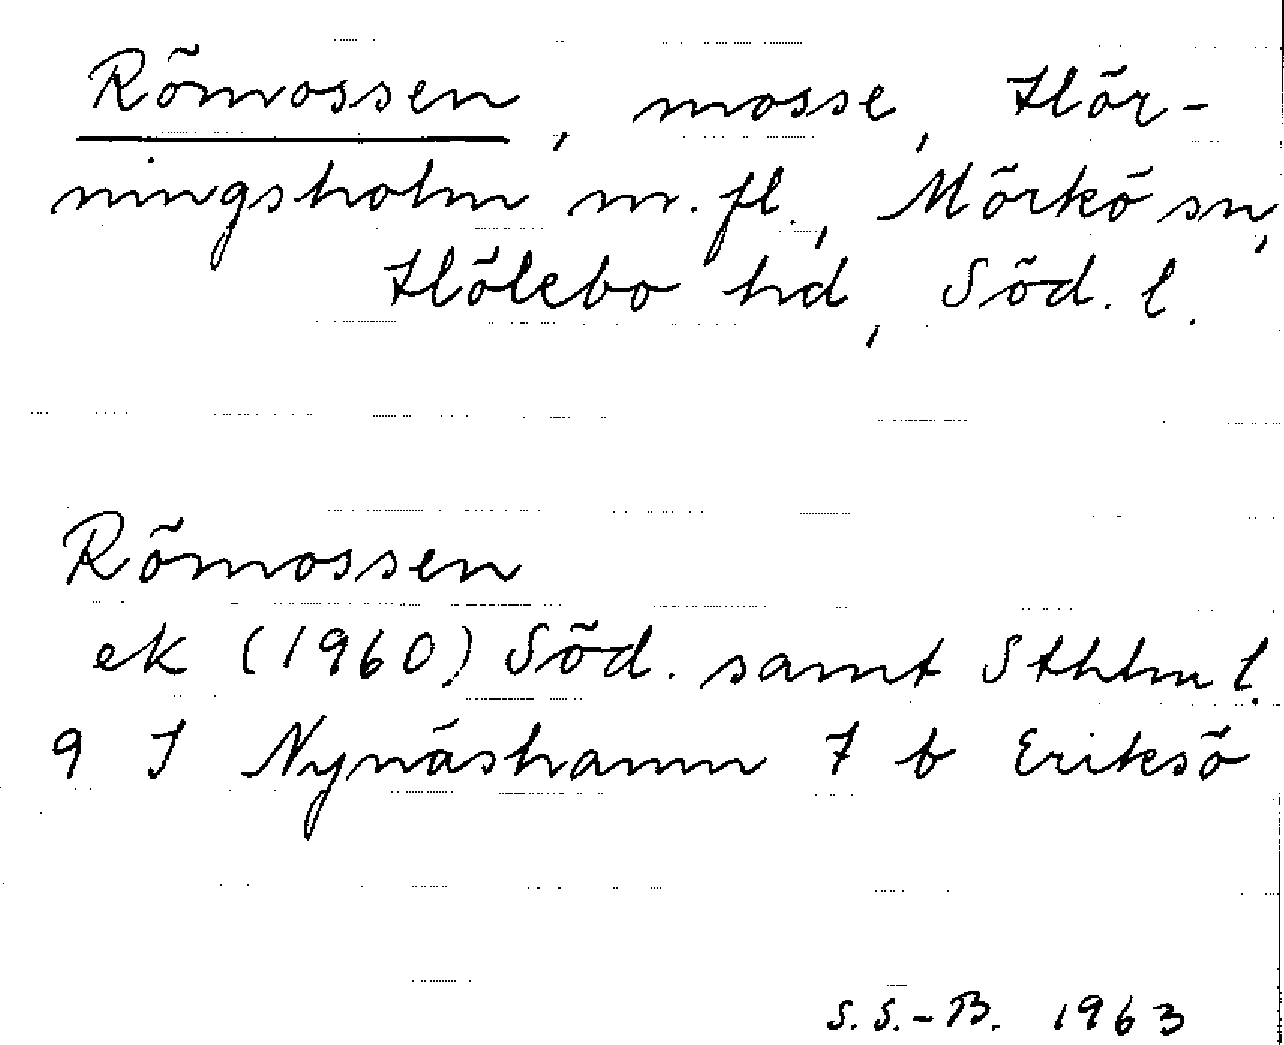 Römossen, mosse, Hör-
ningsholm m. fl., Mörkö sn,
Hölebo hd, Söd. l.
Römossen
ek (1960) Söd. samt Sthlm l.
9 I Nynäshamn 7 b Eriksö
S.S.-B. 1963